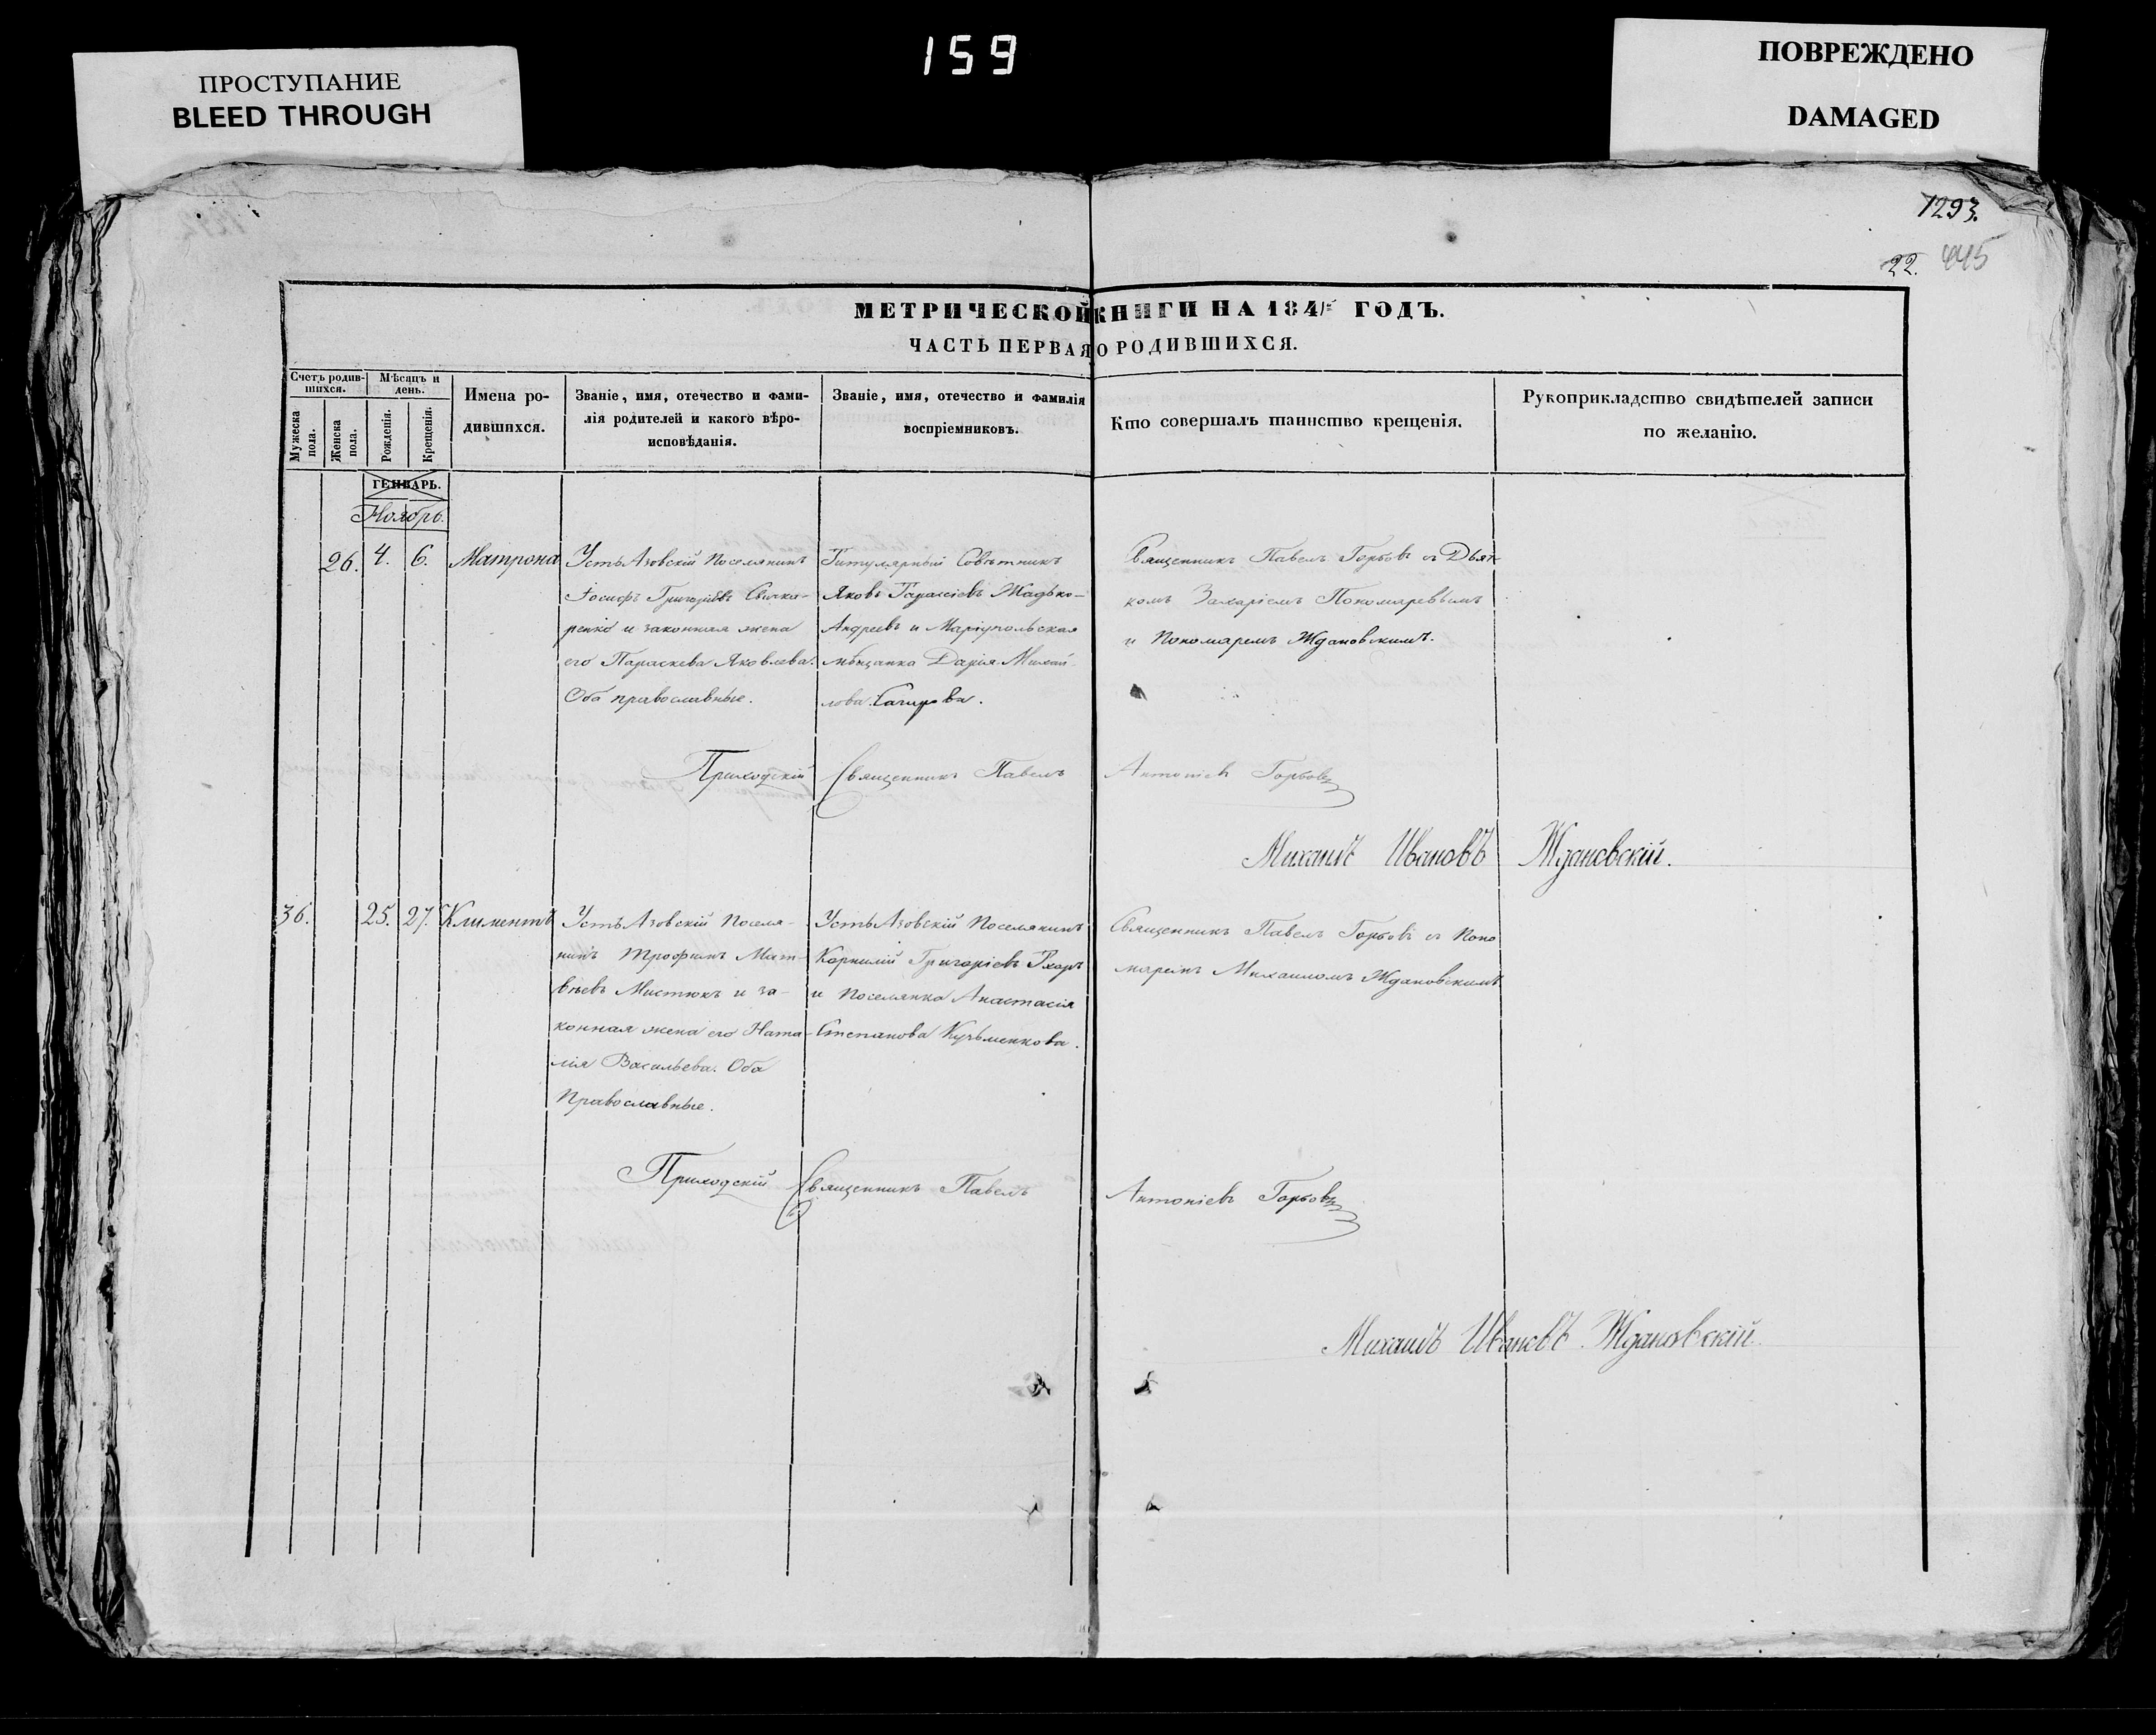 ПРОСТУПАНИЕ
BLEED THROUGH
159
ПОВРЕЖДЕНО
DAMAGED
1293.
22. 445
МЕТРИЧЕСКОЙ КНИГИ НА 1845 ГОДЪ.
ЧАСТЬ ПЕРВАЯ О РОДИВШИХСЯ.
Счетъ родив-
шихся.
Мужеска
пола.
Женска
пола.
Мѣсяцъ и
день.
Рожденія.
Крещенія.
Имена ро-
дившихся.
Званіе, имя, отечество и фами-
лія родителей и какого вѣро-
исповѣданія.
Званіе, имя, отечество и фамилія
воспріемниковъ.
Кто совершалъ таинство крещенія.
Рукоприкладство свидѣтелей записи
по желанію.
ГЕНВАРЬ.
Ноябрь.
26. 4. 6. Матрона
Усть Азовскій Поселянинъ
Іосифъ Григоріевъ
и законная жена
его Параскева Яковлева.
Оба православные.
Титулярный Совѣтникъ
Яковъ Гарасіевъ
Андреевъ и Маріупольская
мѣщанка Дарія Михай-
лова
Священникъ Павелъ Горбовъ съ Дьяч-
комъ Захаріемъ Пономаревымъ
и Пономаремъ Ждановскимъ.
Приходскій Священникъ Павелъ Антоніевъ Горбовъ
Михаилъ Ивановъ Ждановскій.
36. 25. 27. Климентъ
Усть Азовскій Поселя-
нинъ Трофимъ Мат-
вѣевъ Мистюкъ и за-
конная жена его Ната-
лія Васильева. Оба
Православные.
Усть Азовскій Поселянинъ
Корнилій Григоріевъ Тхоръ
и Поселянка Анастасія
Степанова Кузьменкова.
Священникъ Павелъ Горбовъ съ Поно
маремъ Михаиломъ Ждановскимъ
Приходскій Священникъ Павелъ Антоніевъ Горбовъ
Михаилъ Ивановъ Ждановскій.